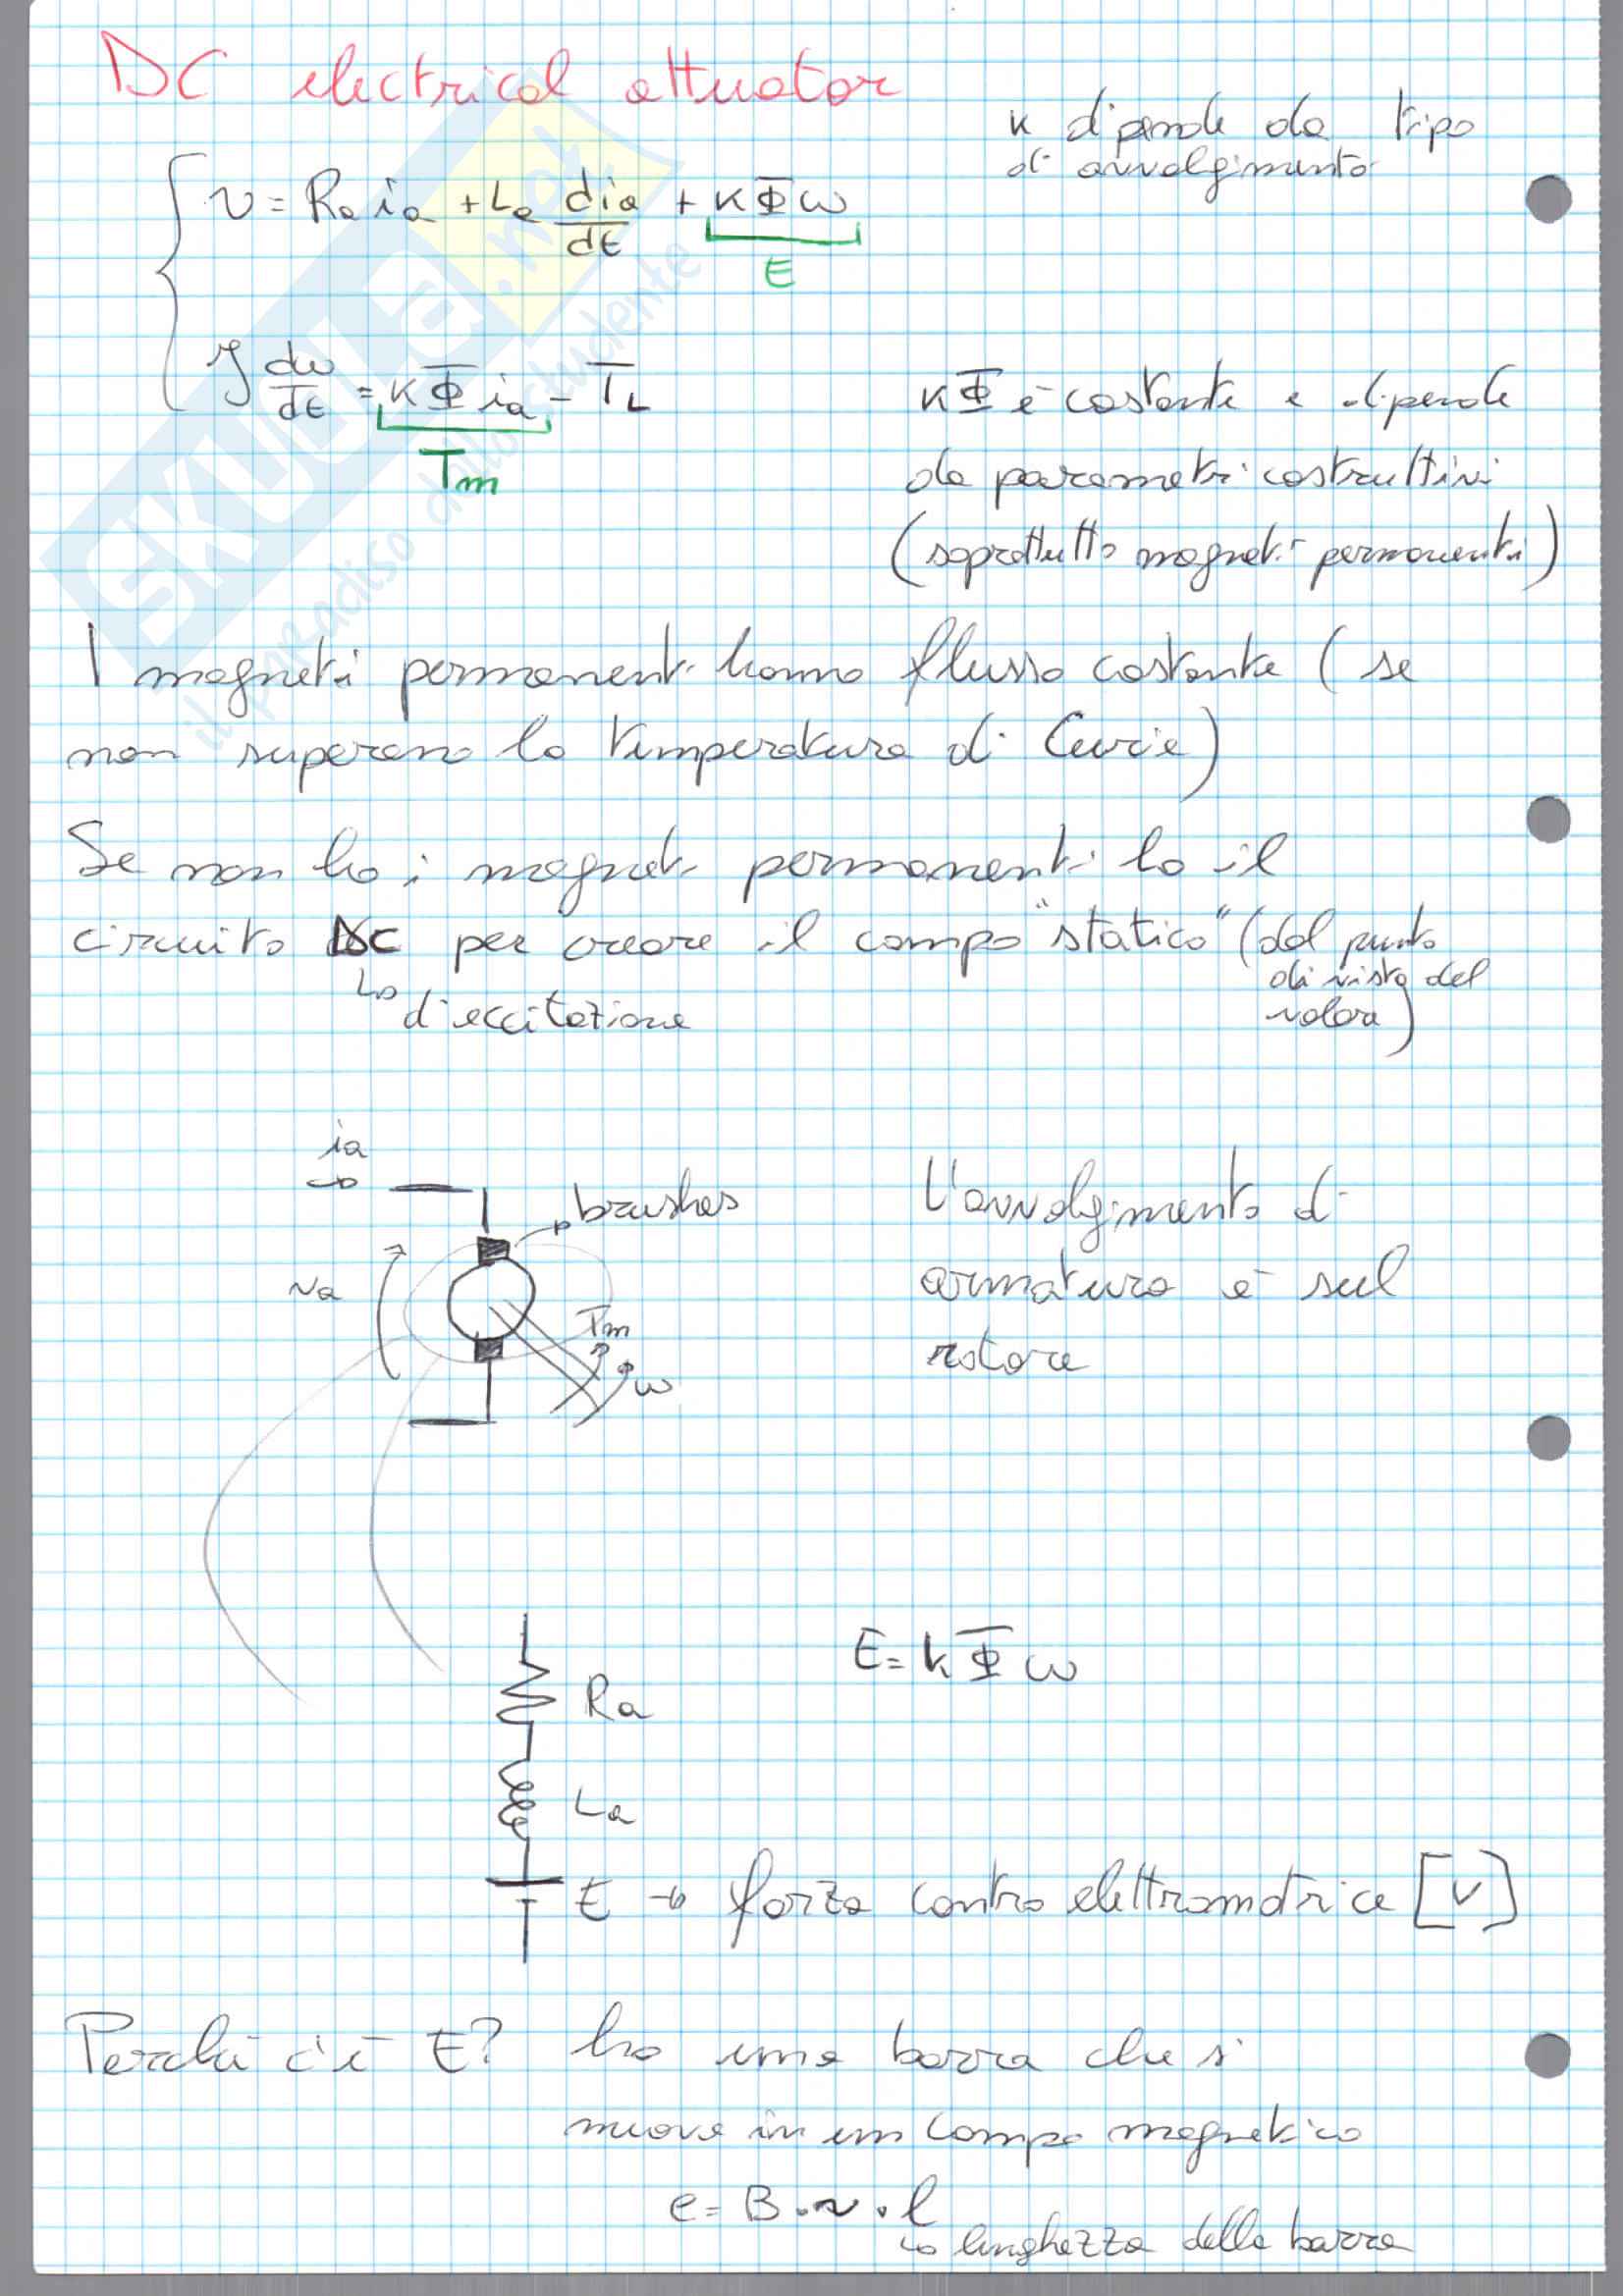 DC electrical attuator
K dipende da tipo
di avvolgimento
v = Ra ia + La dia/dt + KΦω
E
J dω/dt = KΦ ia - TL
Tm
KΦ è costante e dipende
da parametri costruttivi
(soprattutto magneti permanenti)
I magneti permanenti hanno flusso costante (se
non superano la temperatura di Curie)
Se non ho i magneti permanenti ho il
circuito DC per creare il campo "statico" (dal punto
di vista del
valore)
↳ d'eccitazione
ia
brushes
va
Tm
ω
L'avvolgimento di
armatura è sul
rotore
E = kΦω
Ra
La
E → forza contro elettromotrice [V]
Perché c'è E? ho una barra che si
muove in un campo magnetico
e = B · v · l
↳ lunghezza della barra
SKUOLA.net
il paradiso dello studente